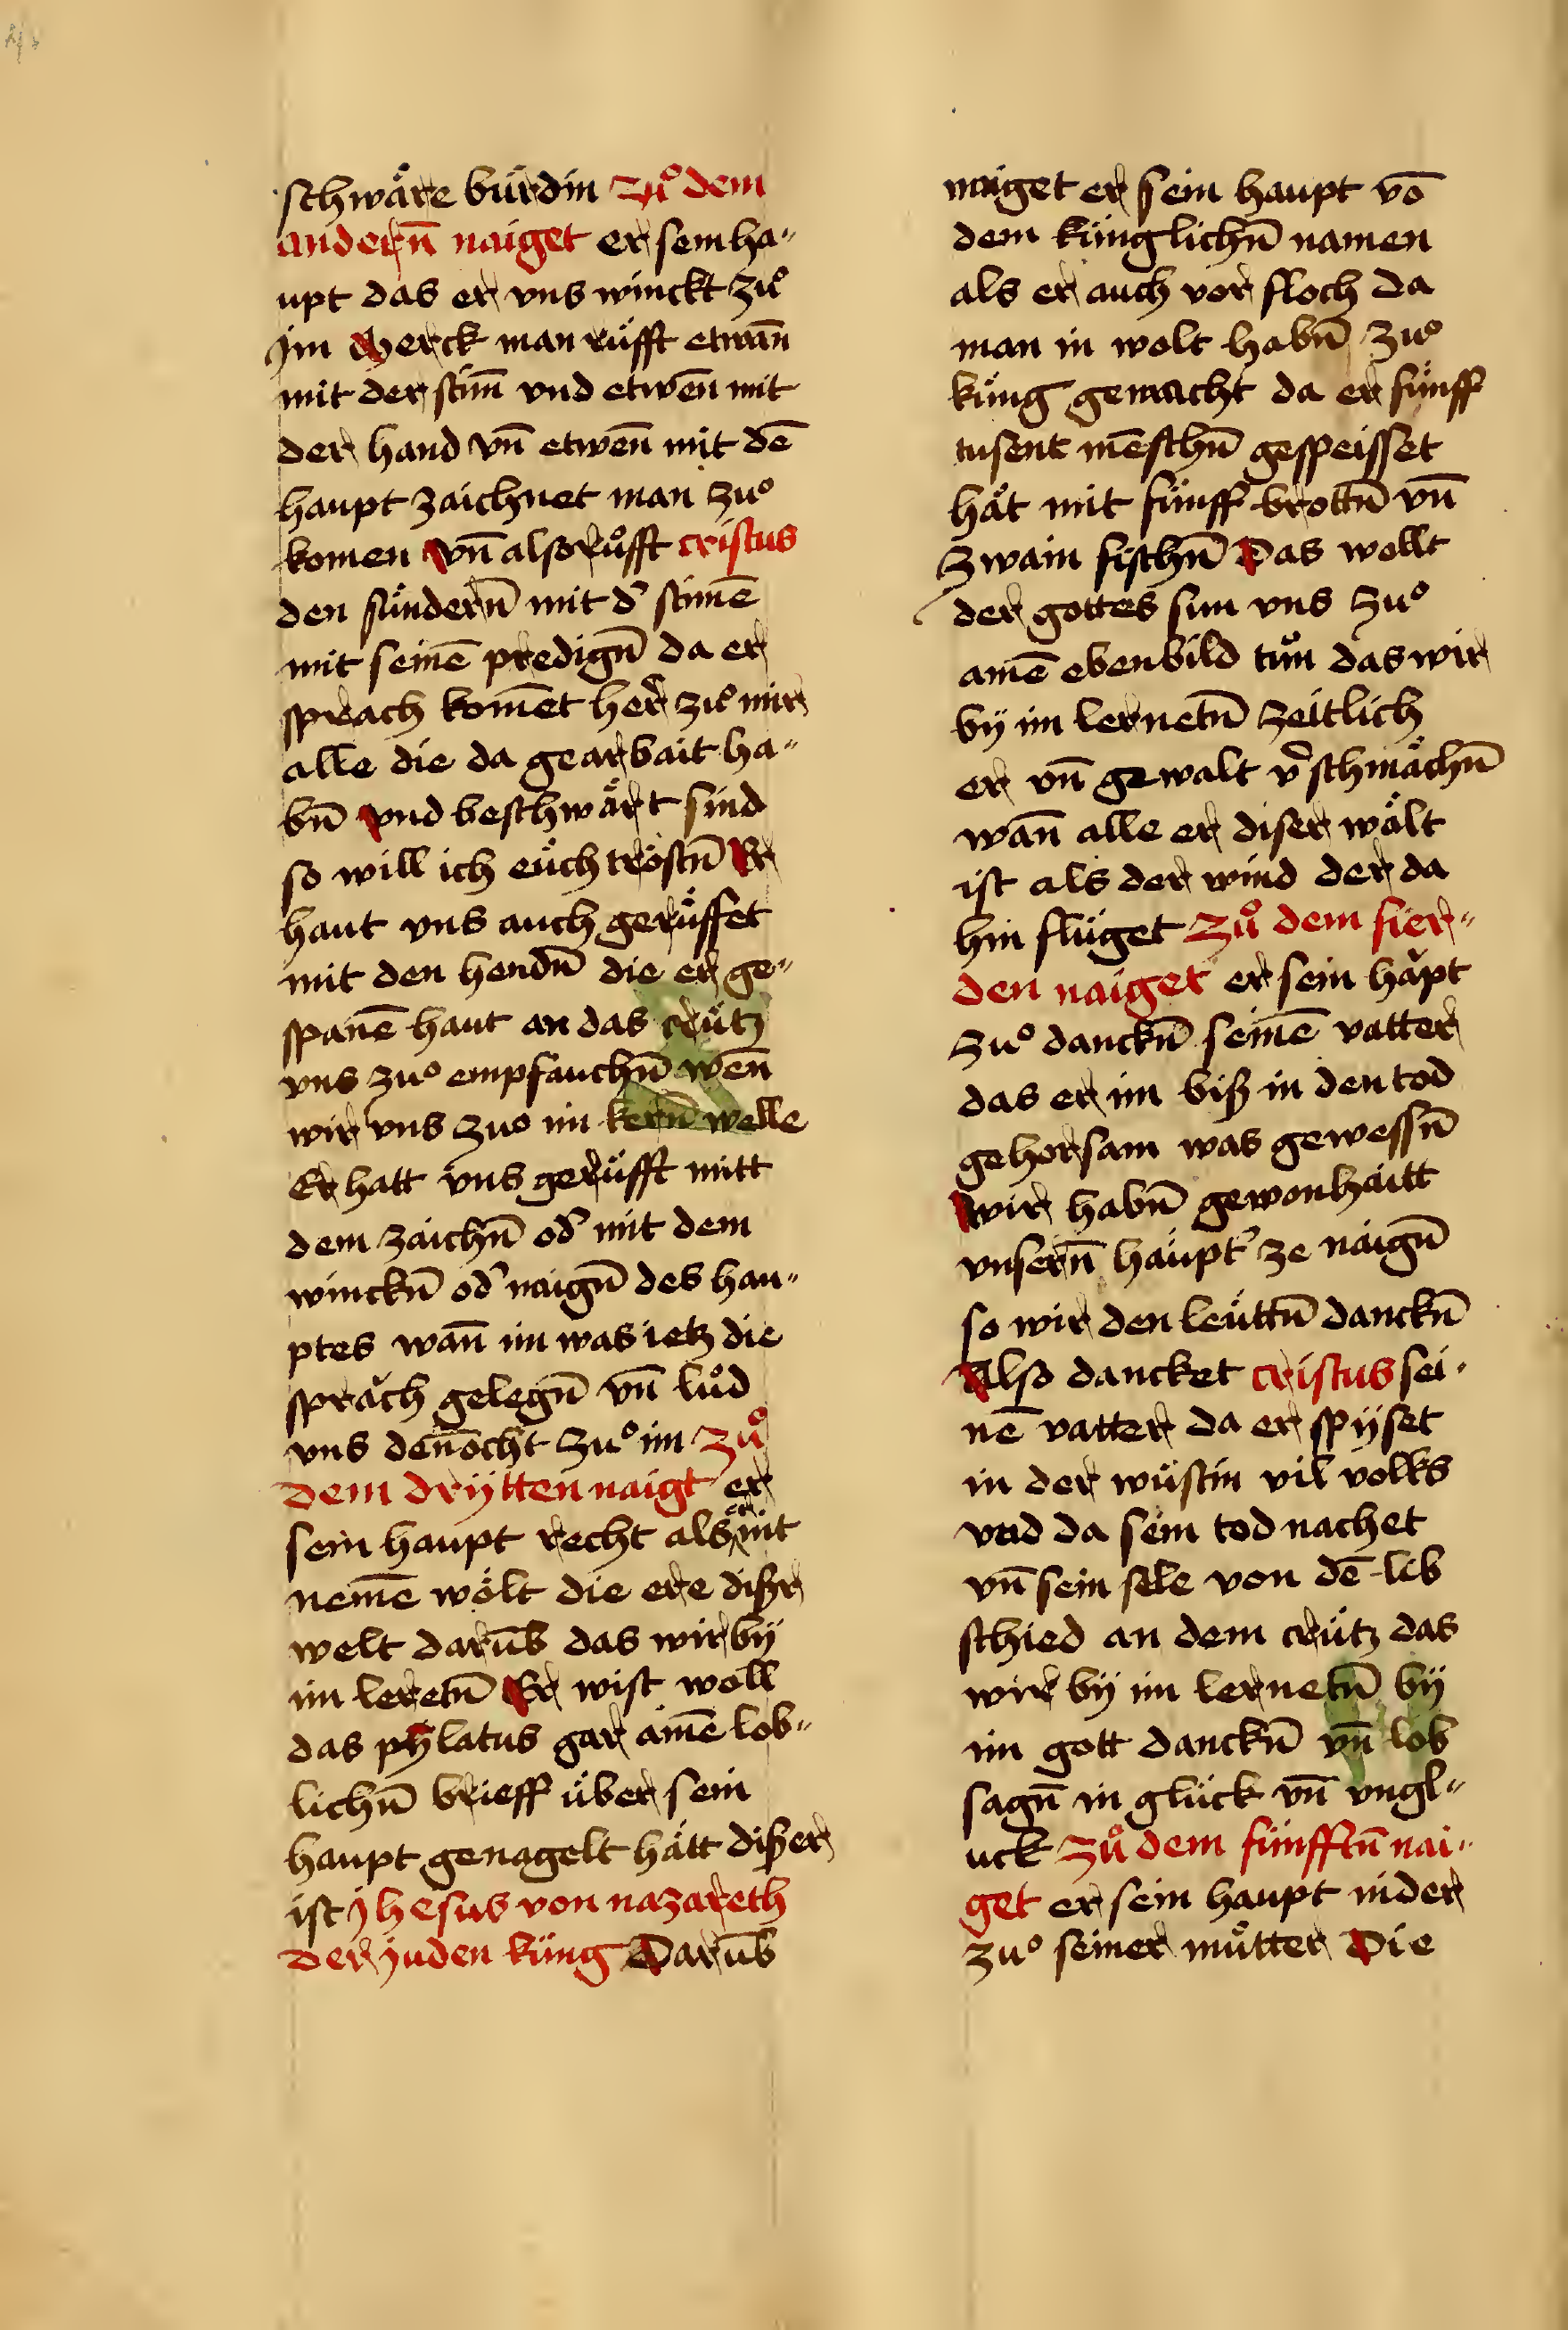 schwäre bürdin Zuͦ dem
andern̄ naiget er sein ha„
upt das er vns winckt zuͦ
jm Merck man rüfft etwan̄
mit der stim̄ vnd etwen̄ mit
der hand vn̄ etwen̄ mit dē
haupt zaichnet man zuͦ
komen Vn̄ also ruͦfft cristus
den sündern̄ mit d' stimē
mit seinē predign̄ da er
sprach kom̄et her zuͦ mir
alle die da gearbait ha„
bn̄ vnd beschwärt sind
so will ich eüch tröstn̄ Er
haut vns auch gerüffet
mit den hendn̄ die er ge„
spanē haut an das crütz
vns zuͦ empfauchn̄ wen̄
wir vns zuo im kern̄ welle
Er hatt vns gerüfft mitt
dem zaichn̄ od' mit dem
winckn̄ od' naign̄ des hau„
ptes wan̄ im was ietz die
sprǎch gelegn̄ vn̄ luͦd
vns den̄ocht zuͦ im Zuͦ
dem drÿtten naigt er
sein haupt recht als er nit
nemē wölt die ere dißr
welt darūb das wir bÿ
im leretn̄ Er wist woll
das pÿlatus gar ainē lob„
lichn̄ brieff über sein
haupt genagelt hätt dißer
ist jhesus von nazareth
der juden küng Darūb
naiget er sein haupt vō
dem künglichn̄ namen
als er auch vor floch da
man in wolt habn̄ zuͦ
küng gemacht da er fünff
tusent mēschn̄ gespeisset
hät mit fünff brottn̄ vn̄
zwain fischn̄ Das wollt
der gottes sun vns zuͦ
ainē ebenbild tuͦn das wir
bÿ im lernetn̄ zeitlich
er vn̄ gewalt v'schmächn̄
wan̄ alle er diser wält
ist als der wind der da
hin flüget Zuͦ dem fier„
den naiget er sein hǎpt
zuͦ danckn̄ seinē vatter
das er im biß in den tod
gehorsam was gewessn̄
wir habn̄ gewonhaitt
vnsern̄ häupt' ze naign̄
so wir den leüttn̄ danckn̄
Also dancket cristus sei„
nē vatter da er spÿset
in der wüstin vil volks
vnd da sein tod nachet
vn̄ sein sele von dē lib
schied an dem crütz das
wir bÿ im lernetn̄ bÿ
im gott danckn̄ vn̄ lob
sagn̄ in glück vn̄ vngl„
uck Zuͦ dem fünfftn̄ nai„
get er sein haupt nider
zuͦ seiner muͦtter Die